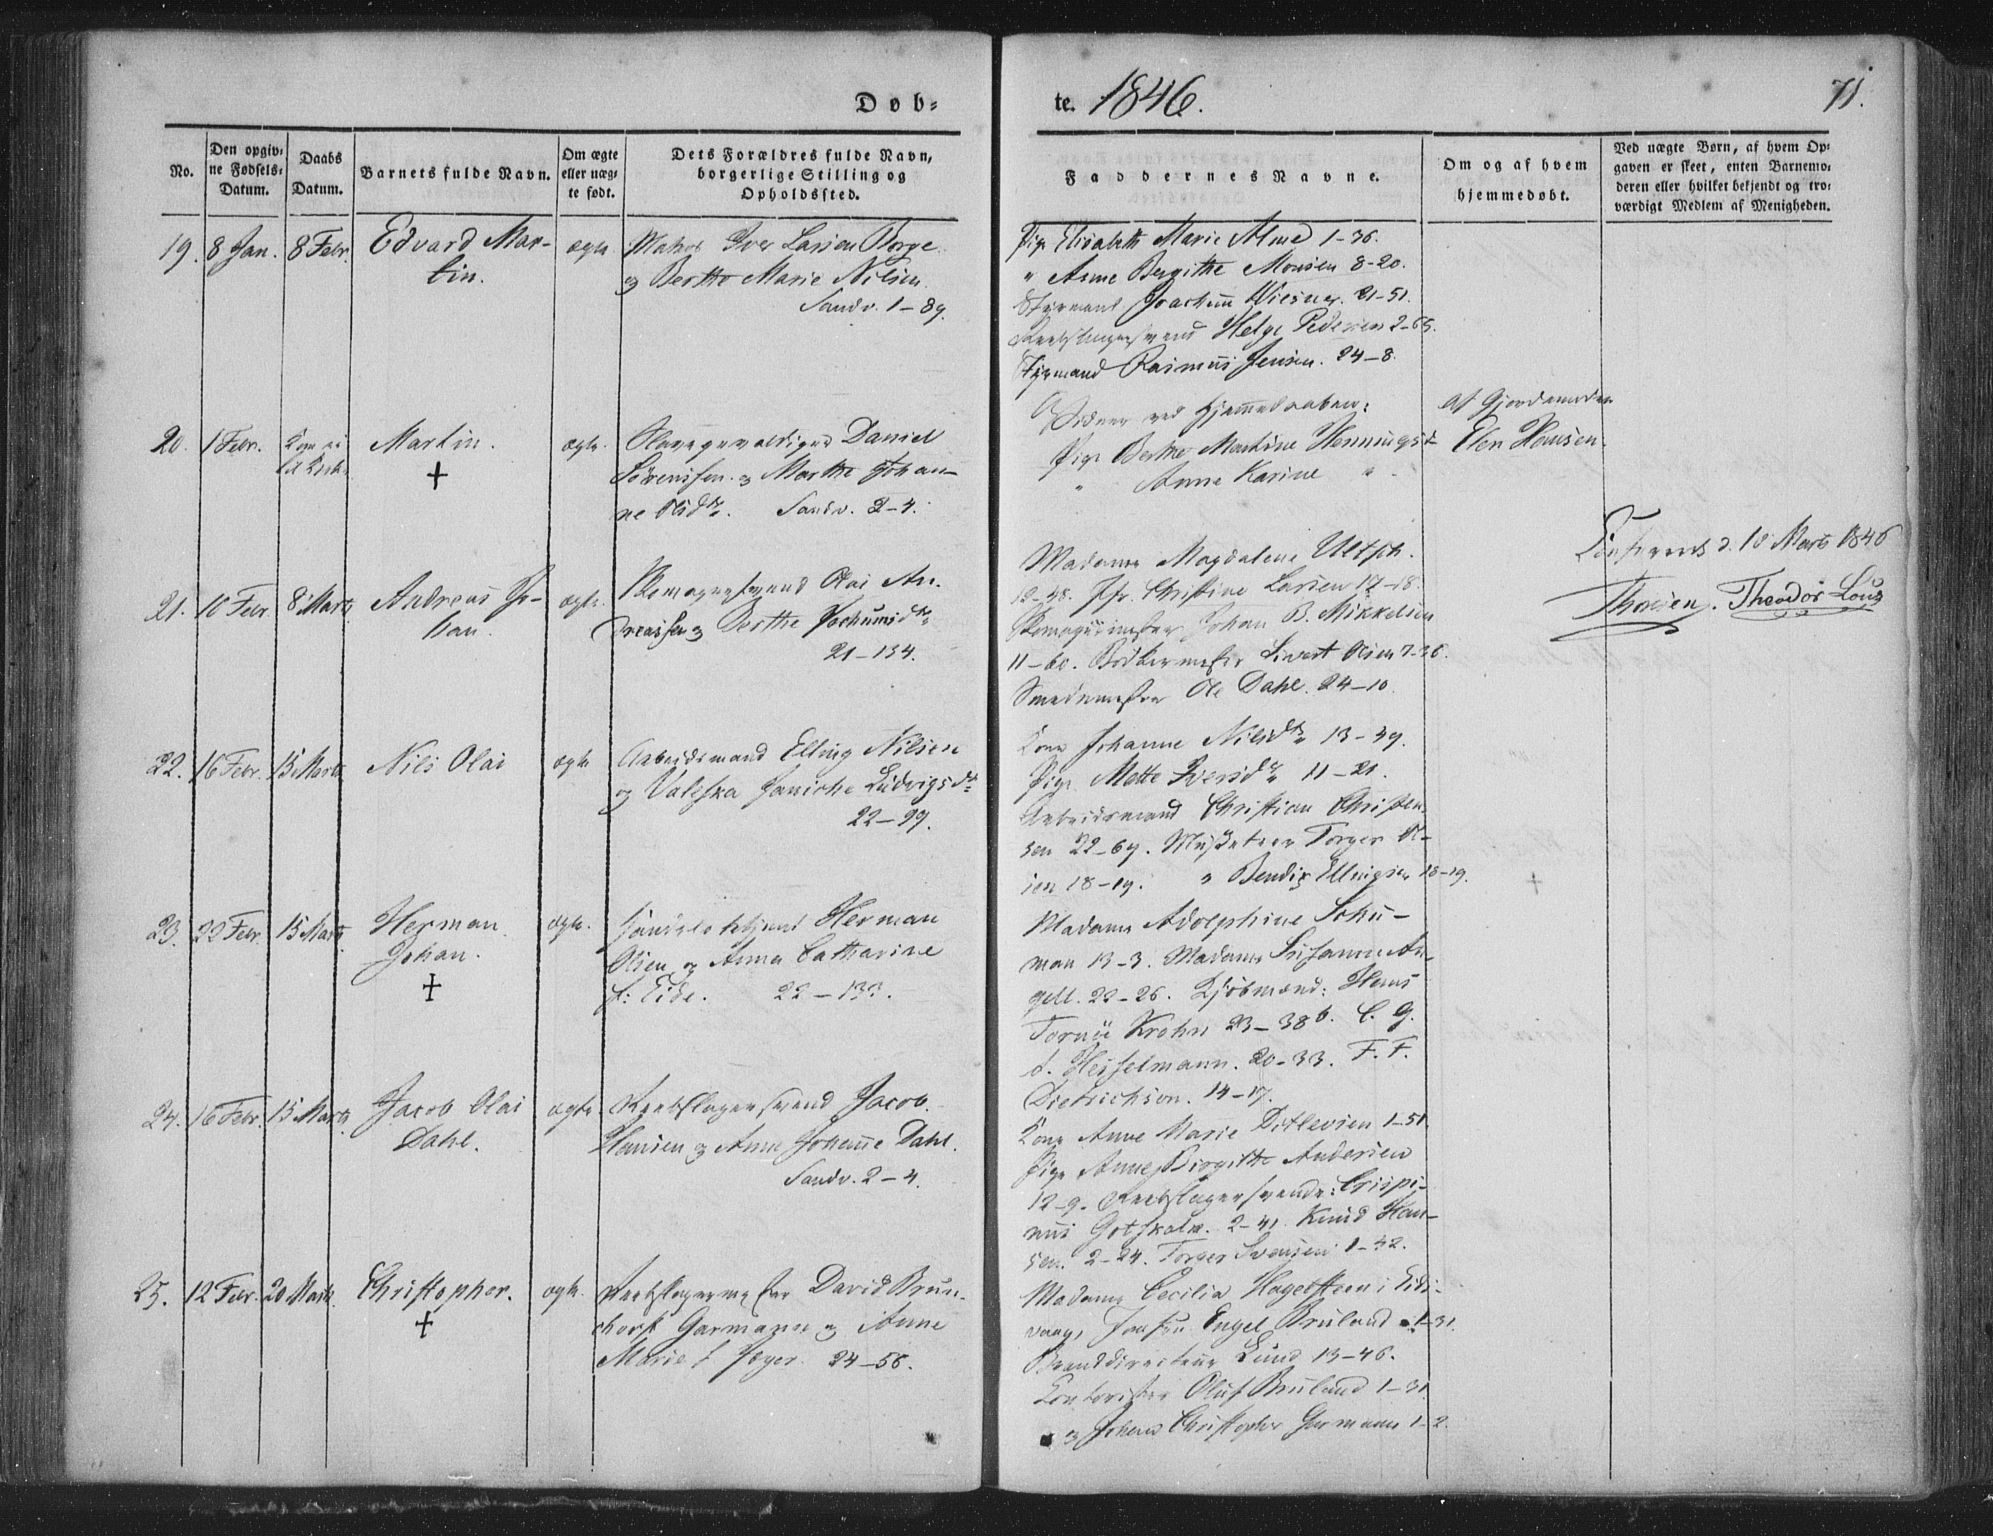 Døb-
te. 1846.
71.
No.
Den opgiv-
ne Fødsels-
Datum.
Daabs
Datum.
Barnets fulde Navn.
Om ægte
eller uæg-
te født.
Dets Forældres fulde Navn,
borgerlige Stilling og
Opholdssted.
Faddernes Navne.
Om og af hvem
hjemmedøbt.
Ved uægte Børn, af hvem Op-
gaven er skeet, enten Barnemo-
deren eller hvilket bekjendt og tro-
værdigt Medlem af Menigheden.
19. 8 Jan. 8 Febr. Edvard Mar-
tin.
ægte
Iver Larsen Borge
og Berthe Marie Nilsen
Sandv. 1-89.
Pige Elisabeth Marie Alme 1-36.
" Anne Bergithe Monsen 8-20.
Styrmand Joachim Wiesner. 21-51.
Reebslagersvend Helge Pedersen 2-65.
Styrmand Rasmus Jensen. 24-8.
20. 1 Febr.
Martin.
+
ægte.
Daniel
Sørenssen og Marthe Johan-
ne Olsdr. Sandv. 2-4.
Vidner ved Hjemmedaaben:
Pige Berthe Martine Hennings
" Anne Karine "
af Gjordemoder
Elen Hansen.
Confereret d. 10 Marts 1846
Thorsen. Theodor Lous
21. 10 Febr. 8 Marts Andreas Jo-
han.
ægte.
Skomagersvend Olai An-
dreassen og Berthe Jochumsdr.
21-134.
Madame Magdalena Ultsch.
12-48. Jfr. Christine Larsen 17-18.
Skomagermester Johan B. Mikkelsen
11-60. Bødkermester Sivert Olsen 7-36.
Smedemester Ole Dahl. 24-10.
22. 16 Febr. 15 Marts Nils Olai
ægte
Arbeidsmand Elling Nilsen
og Valeska Janiche Ludvigsdr.
22-99.
Kone Johanne Nilsdr. 13-49.
Pige Mette Iversdr. 11-21.
Arbeidsmand Christian Christen-
sen 22-69. Musketeer Torger Ol-
sen 18-19. " Bendix Ellingsen 18-19.
+
23. 22 Febr. 15 Marts Herman
Johan.
+
ægte.
Herman
Olsen og Anna Catharine
f: Eide. 22-133.
Madame Adolphine Schu-
man 13-3. Madame Susanne An-
gell. 22-26. Kjøbmænd: Hans
Tornöe Krohn 23-38b. C. G.
f. Hesselmann. 20-33. F. F.
Dietrichson. 14-17.
24. 16 Febr. 15 Marts Jacob Olai
Dahl.
ægte
Reebslagersvend Jacob
Hansen og Anne Johanne Dahl.
Sandv. 2-4.
Kone Anne Marie Ditlevsen 1-51.
Pige Anne Birgithe Andersen
12-9. Reebslagersvende: Crispi-
nus Gotskalk. 2-41. Knud Han-
sen. 2-24. Torger Svensen 1-42.
25. 12 Febr. 20 Marts Christopher.
+
ægte.
Reebslagermester David Brun-
chorst Garmann og Anne
Marie f Jæger. 24-56.
Madame Cecilia Hagelsteen i Eids-
vaag, Jomfru Engel Bruland 1-31.
Branddirecteur Lund 13-46.
Contorister Oluf Bruland 1-31
og Johan Christopher Garmann 1-2.